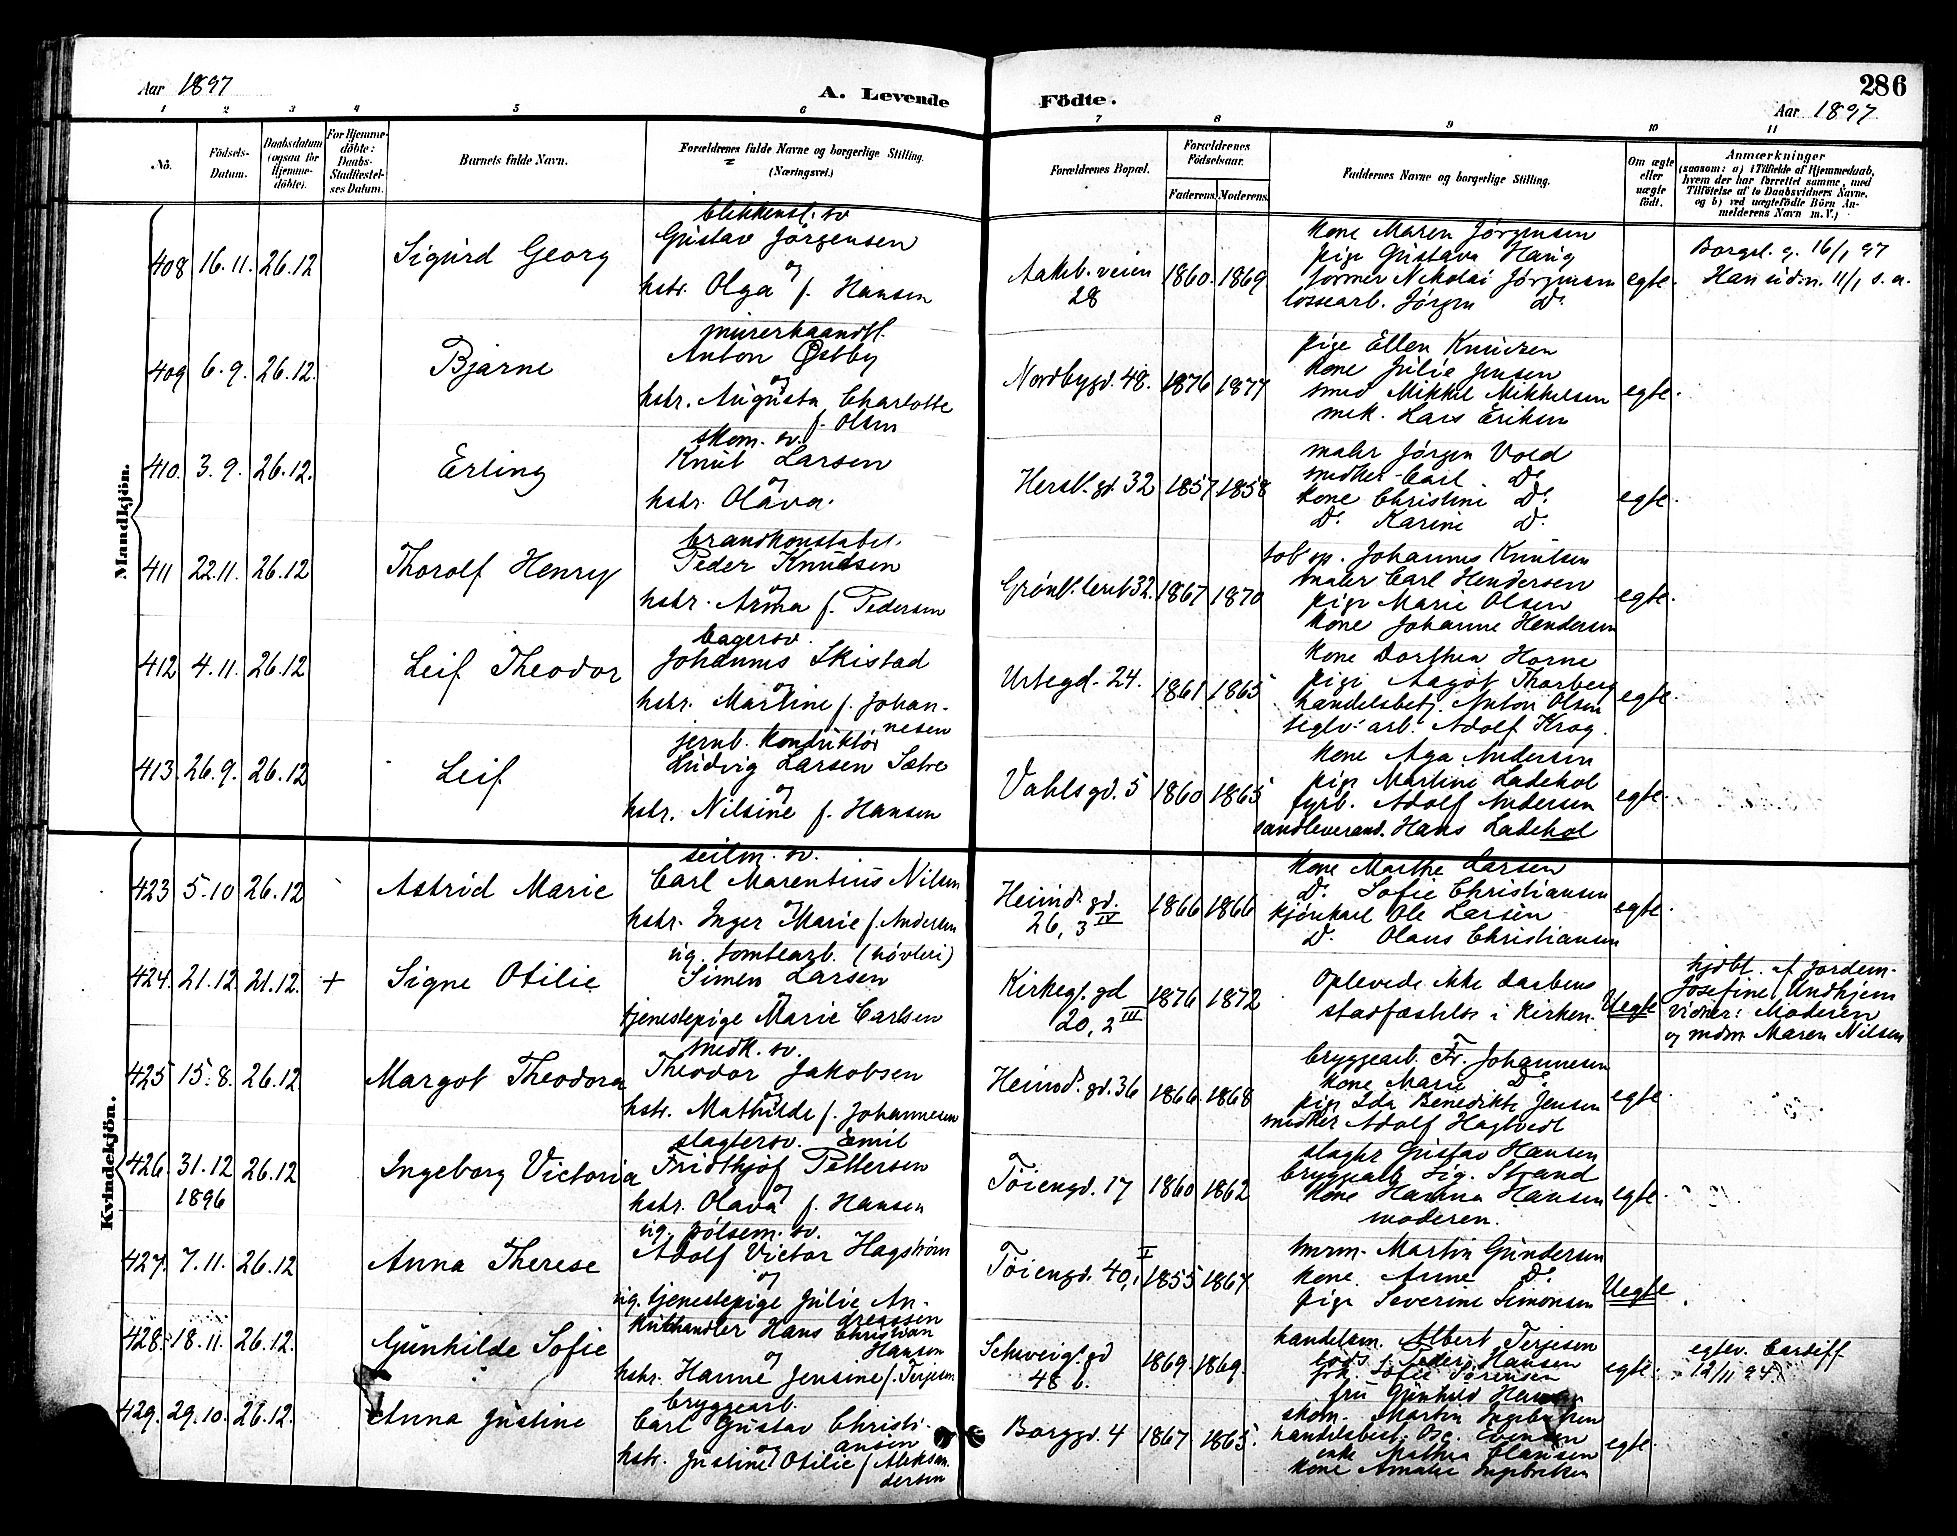 286
Aar 1897
A. Levende Födte.
Aar 1897.
1 2 3 4 5 6 7 8 9 10 11
No.
Födsels-
Datum.
Daabsdatum
(ogsaa for
Hjemme-
döbte).
For Hjemme-
döbte:
Daabs-
Stadfæstel-
ses Datum.
Barnets fulde Navn.
Forældrenes fulde Navne og borgerlige Stilling.
(Næringsvei.)
Forældrenes Bopæl.
Forældrenes
Födselsaar.
Faderens. Moderens.
Faddernes Navne og borgerlige Stilling.
Om ægte
eller
uægte
födt.
Anmærkninger
(saasom: a) i Tilfælde af Hjemmedaab,
hvem der har forrettet samme, med
Tilföielse af to Daabsvidners Navne,
og b) ved uægtefödte Börn An-
melderens Navn m. V.)
Mandkjön.
408 16.11. 26.12 Sigurd Georg
blikkensl. sv
Gustav Jörgensen
og
hstr. Olga f. Hansen
Aakeb. veien
28
1860. 1869
kone Maren Jörgensen
pige Gustava Haug
former Nikolai Jørgensen
lossearb. Jørgen Do
egte.
Borgsl. g. 16/1 97
11/1 s.a.
409 6.9. 26.12. Bjarne
murerhaandl.
Anton Østby
og
hstr. Augusta Charlotte
f. Olsen
Nordbygd. 48. 1876 1877
pige Ellen Knudsen
kone Julie Jensen
smed Mikkel Mikkelsen
mek. Lars Eriksen
egte.
410. 3.9. 26.12. Erling
skom. sv.
Knut Larsen
og
hstr. Olava.
Hersl. gd. 32 1857 1858
maler Jørgen Vold
snedker Carl Do
kone Christine Do
Do Karine Do
egte.
411 22.11. 26.12 Thorolf Henry
brandkonstabel.
Peder Knudsen
og
hstr. Anna f. Pedersen
Grønl. leret 32. 1867 1870
tob. sp. Johannes Knutsen
maler Carl Hendersen
pige Marie Olsen
kone Johanne Hendersen
egte.
412 4.11. 26.12 Leif Theodor
bagersv.
Johannes Skistad
og
hstr. Martine f. Johan-
nesen
Urtegd. 24. 1861 1865
kone Dorthea Horne
pige Aagot Thorberg
handelsbetj. Anton Olsen
teglv. arb. Adolf Krog.
egte.
413. 26.9. 26.12 Leif
jernb. konduktör
Ludvig Larsen Sætre
og
hstr. Nilsine f. Hansen
Vahlsgd. 5 1860 1865
kone Aga Andersen
pige Martine Ladehol
fyrb. Adolf Andersen
sandleverand. Hans Ladehol
egte.
Kvindekjön.
423 5.10 26.12 Astrid Marie
seilm. sv.
Carl Marentius Nilsen
hstr. Inger Marie f. Andersen
Heimd. gd.
26, 3 IV
1866 1866
kone Marthe Larsen
Do Sofie Christiansen
kjörekarl Ole Larsen
Do Olaus Christiansen
egte.
424. 21.12 21.12. + Signe Otilie
ug. tomtearb. (høvleri)
Simen Larsen
og
tjenestepige Marie Carlsen
Kirkeg. gd
20, 2 III
1876 1872
Oplevede ikke daabens
stadfæstelse i kirken.
Uegte
hjdbt. af Jordem.
Josefine Undhjem
vidner: Moderen
og mdm Maren Nilsen
425 15.8. 26.12 Margot Theodora
snedk. sv.
Theodor Jakobsen
og
hstr. Mathilde f. Johannesen
Heimd. gd. 36 1866 1868
bryggearb. Fr. Johannesen
kone Marie Do
pige Ida Benedikte Jensen
snedker Adolf Hagtvedt
egte.
426 31.12 26.12 Ingeborg Victoria
1896
slagtersv. Emil
Fridthjof Pettersen
og
hstr. Olava f. Hansen
Töiengd. 17 1860 1862
slagter Gustav Hansen
bryggearb. Sig. Strand
kone Hanna Hansen
moderen.
egte.
427. 7.11. 26.12 Anna Therese
ug. pölsem. sv.
Adolf Victor Hagström
og
ug. tjenestepige Julie An-
dreassen
Töiengd. 40, V 1855 1867.
tmrm. Martin Gundersen
kone Anne Do
pige Severine Simonsen
Uegte
428. 18.11. 26.12. Gunhilde Sofie
kulhandler Hans Christian
Hanson
og
hstr. Hanne Jensine f. Terjesen
Schweig. gd
48 b.
1869. 1869.
handelsm. Albert Terjesen
Peder Hansen
frk. Sofie Sörensen
fru Gunhild Hansen
egte.
egtev. Cardiff
12/11
429. 29.10. 26.12. Anna Justine
bryggearb.
Carl Gustav Christi-
ansen
og
hstr. Justine Otilie f. Aleksan-
dersen
Borggd. 4 1867 1865.
skom. Martin Ingebriktsen
handelsbest. Osc. Evensen
enke Mathea Clausen
kone Amalie Ingebriktsen
egte.